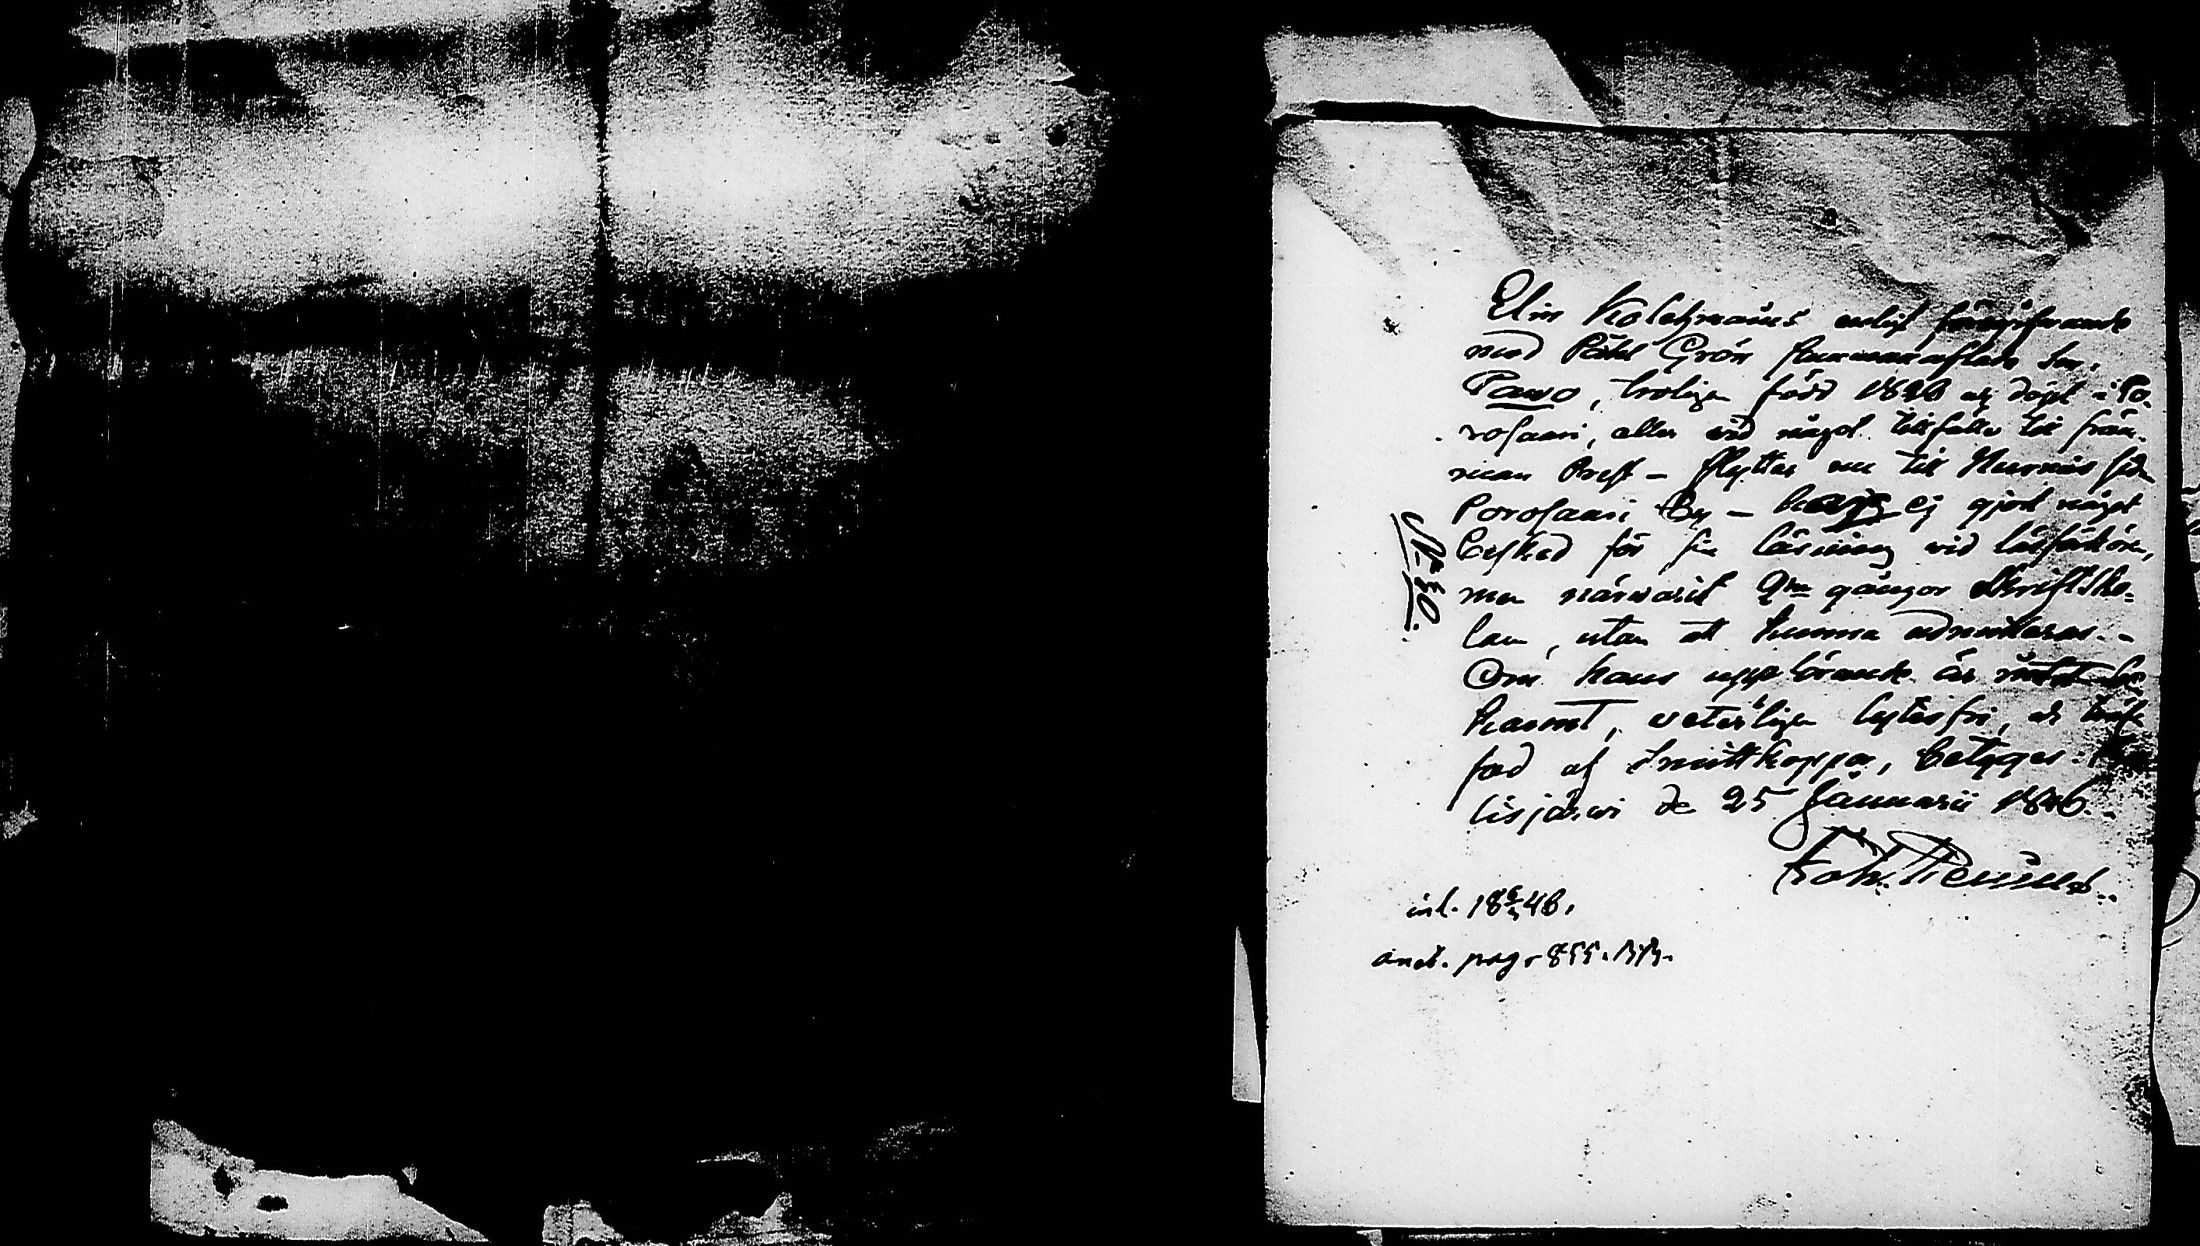 Elin Kolehmains enligt föregifvande
med Påhl Grön sammanaflade son,
Pawo, troligen född 1820 och döpt i Po-
rosaari, eller vid något tillfälle till från-
man Prest - flyttar nu till Nurmis sokn
Porosaari By - har ej gjort något
besked för sin läsning vid läsförhören,
men närvarit 2ne gångor Skriftsko-
lan, utan att kunna admitteras. -
Om hans uppförande är intet be-
kannt, veterligen lytesfri, och
fad af smittkoppor, betygas.
lisjärwi de 25 Januarii 1846.
Joh.
№ 30.
inl. 18 46.
anet. pag. 855.